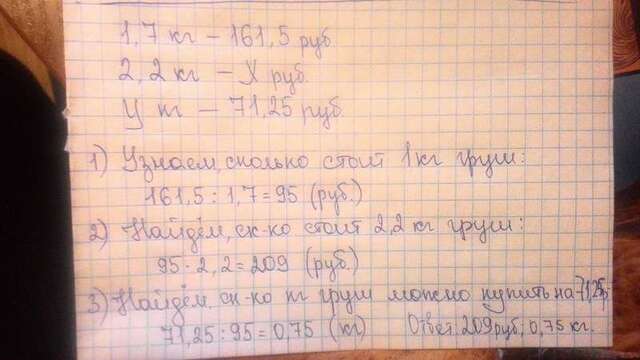 1,7 кг – 161,5 руб
2,2 кг – X руб
У т – 71,25 руб
1) Узнаем сколько стоит 1 кг груш:
161,5 : 1,7 = 95 (руб)
2) Найдём, ск-ко стоит 2,2 кг груш:
95 · 2,2 = 209 (руб)
3) Найдём, ск-ко т груш можно купить на 71,25р
71,25 : 95 = 0,75 (т)
Ответ 209 руб; 0,75 кг.